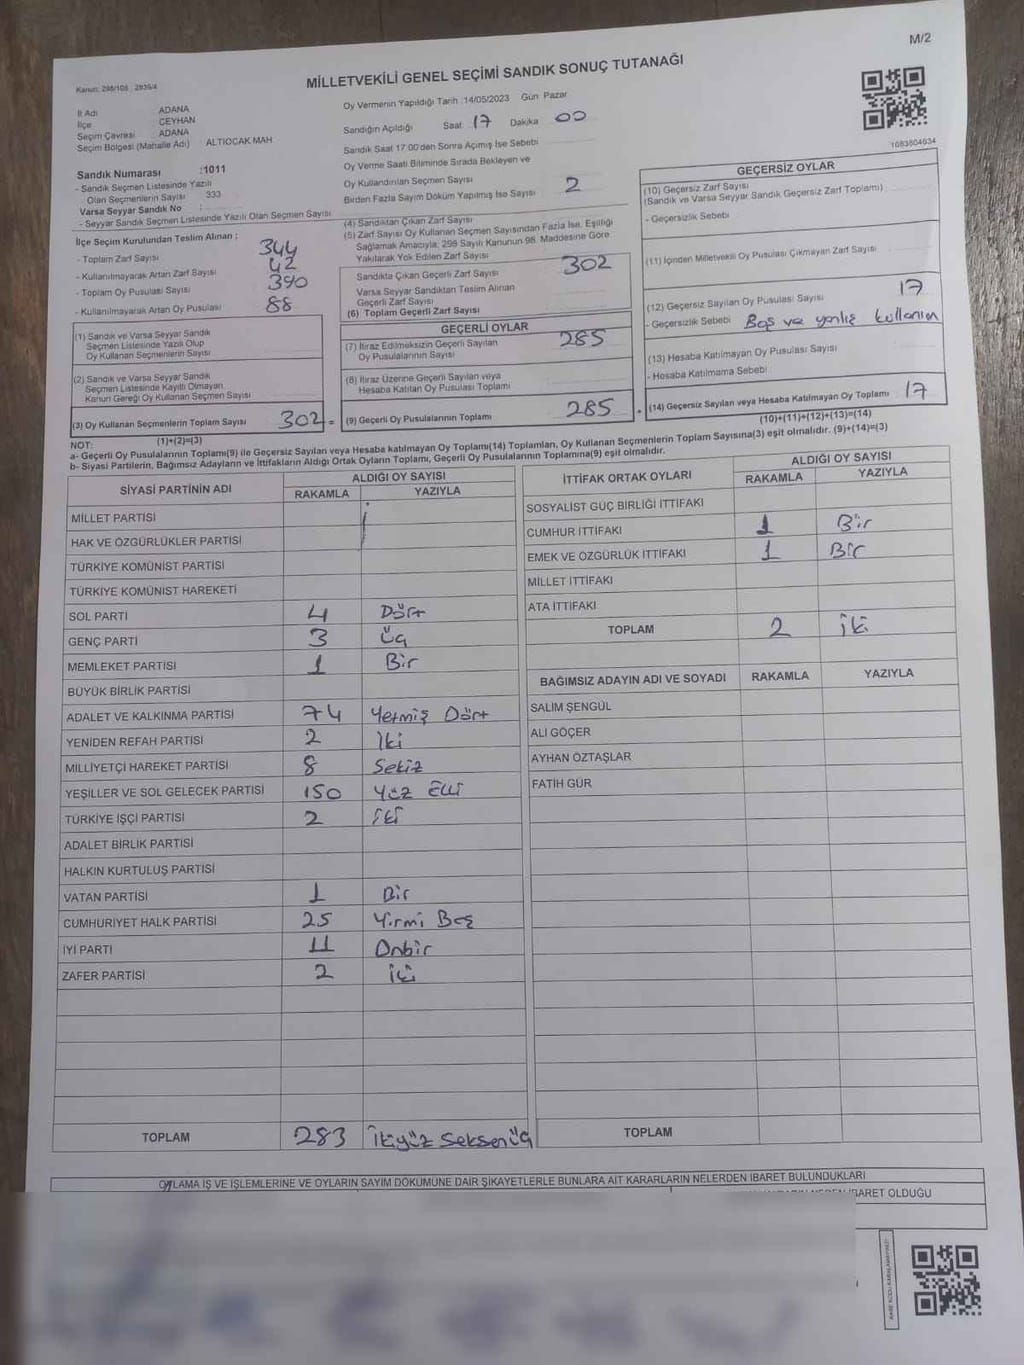 M/2
Kanun: 298/105 , 2839/4
MİLLETVEKİLİ GENEL SEÇİMİ SANDIK SONUÇ TUTANAĞI
İl Adı ADANA
İlçe CEYHAN
Seçim Çevresi ADANA
Seçim Bölgesi (Mahalle Adı) ALTIOCAK MAH
Sandık Numarası :1011
- Sandık Seçmen Listesinde Yazılı
Olan Seçmenlerin Sayısı : 333
Varsa Seyyar Sandık No :
- Seyyar Sandık Seçmen Listesinde Yazılı Olan Seçmen Sayısı
İlçe Seçim Kurulundan Teslim Alınan :
- Toplam Zarf Sayısı 344
- Kullanılmayarak Artan Zarf Sayısı 42
- Toplam Oy Pusulası Sayısı 390
- Kullanılmayarak Artan Oy Pusulası 88
(1) Sandık ve Varsa Seyyar Sandık
Seçmen Listesinde Yazılı Olup
Oy Kullanan Seçmenlerin Sayısı
(2) Sandık ve Varsa Seyyar Sandık
Seçmen Listesinde Kayıtlı Olmayan
Kanun Gereği Oy Kullanan Seçmen Sayısı
(3) Oy Kullanan Seçmenlerin Toplam Sayısı 302 =
(1)+(2)=(3)
Oy Vermenin Yapıldığı Tarih :14/05/2023 Gün Pazar
Sandığın Açıldığı Saat 17 Dakika 00
Sandık Saat 17:00'den Sonra Açımış İse Sebebi
Oy Verme Saati Bitiminde Sırada Bekleyen ve
Oy Kullandırılan Seçmen Sayısı
Birden Fazla Sayım Döküm Yapılmış İse Sayısı 2
(4) Sandıktan Çıkan Zarf Sayısı
(5) Zarf Sayısı Oy Kullanan Seçmen Sayısından Fazla İse, Eşitliği
Sağlamak Amacıyla, 298 Sayılı Kanunun 98. Maddesine Göre
Yakılarak Yok Edilen Zarf Sayısı
Sandıkta Çıkan Geçerli Zarf Sayısı 302
Varsa Seyyar Sandıktan Teslim Alınan
Geçerli Zarf Sayısı
(6) Toplam Geçerli Zarf Sayısı
GEÇERLİ OYLAR
(7) İtiraz Edilmeksizin Geçerli Sayılan
Oy Pusulalarının Sayısı 285
(8) İtiraz Üzerine Geçerli Sayılan veya
Hesaba Katılan Oy Pusulası Toplamı
(9) Geçerli Oy Pusulalarının Toplamı 285 +
1083604634
GEÇERSİZ OYLAR
(10) Geçersiz Zarf Sayısı
(Sandık ve Varsa Seyyar Sandık Geçersiz Zarf Toplamı)
- Geçersizlik Sebebi
(11) İçinden Milletvekili Oy Pusulası Çıkmayan Zarf Sayısı
(12) Geçersiz Sayılan Oy Pusulası Sayısı 17
- Geçersizlik Sebebi Boş ve yanlış kullanım
(13) Hesaba Katılmayan Oy Pusulası Sayısı
- Hesaba Katılmama Sebebi
(14) Geçersiz Sayılan veya Hesaba Katılmayan Oy Toplamı 17
(10)+(11)+(12)+(13)=(14)
NOT:
a- Geçerli Oy Pusulalarının Toplamı(9) ile Geçersiz Sayılan veya Hesaba katılmayan Oy Toplamı(14) Toplamları, Oy Kullanan Seçmenlerin Toplam Sayısına(3) eşit olmalıdır. (9)+(14)=(3)
b- Siyasi Partilerin, Bağımsız Adayların ve İttifakların Aldığı Ortak Oyların Toplamı, Geçerli Oy Pusulalarının Toplamına(9) eşit olmalıdır.
SİYASİ PARTİNİN ADI ALDIĞI OY SAYISI
RAKAMLA YAZIYLA
MİLLET PARTİSİ
HAK VE ÖZGÜRLÜKLER PARTİSİ
TÜRKİYE KOMÜNİST PARTİSİ
TÜRKİYE KOMÜNİST HAREKETİ
SOL PARTİ 4 Dört
GENÇ PARTİ 3 Üç
MEMLEKET PARTİSİ 1 Bir
BÜYÜK BİRLİK PARTİSİ
ADALET VE KALKINMA PARTİSİ 74 Yetmiş Dört
YENİDEN REFAH PARTİSİ 2 İki
MİLLİYETÇİ HAREKET PARTİSİ 8 Sekiz
YEŞİLLER VE SOL GELECEK PARTİSİ 150 Yüz Elli
TÜRKİYE İŞÇİ PARTİSİ 2 İki
ADALET BİRLİK PARTİSİ
HALKIN KURTULUŞ PARTİSİ
VATAN PARTİSİ 1 Bir
CUMHURİYET HALK PARTİSİ 25 Yirmi Beş
İYİ PARTİ 11 Onbir
ZAFER PARTİSİ 2 iki
TOPLAM 283 İkiyüz Seksen üç
İTTİFAK ORTAK OYLARI ALDIĞI OY SAYISI
RAKAMLA YAZIYLA
SOSYALİST GÜÇ BİRLİĞİ İTTİFAKI
CUMHUR İTTİFAKI 1 Bir
EMEK VE ÖZGÜRLÜK İTTİFAKI 1 Bir
MİLLET İTTİFAKI
ATA İTTİFAKI
TOPLAM 2 iki
BAĞIMSIZ ADAYIN ADI VE SOYADI RAKAMLA YAZIYLA
SALIM ŞENGÜL
ALİ GÖÇER
AYHAN ÖZTAŞLAR
FATİH GÜR
TOPLAM
OYLAMA İŞ VE İŞLEMLERİNE VE OYLARIN SAYIM DÖKÜMÜNE DAİR ŞİKAYETLERLE BUNLARA AİT KARARLARIN NELERDEN İBARET BULUNDUKLARI
İBARET OLDUĞU